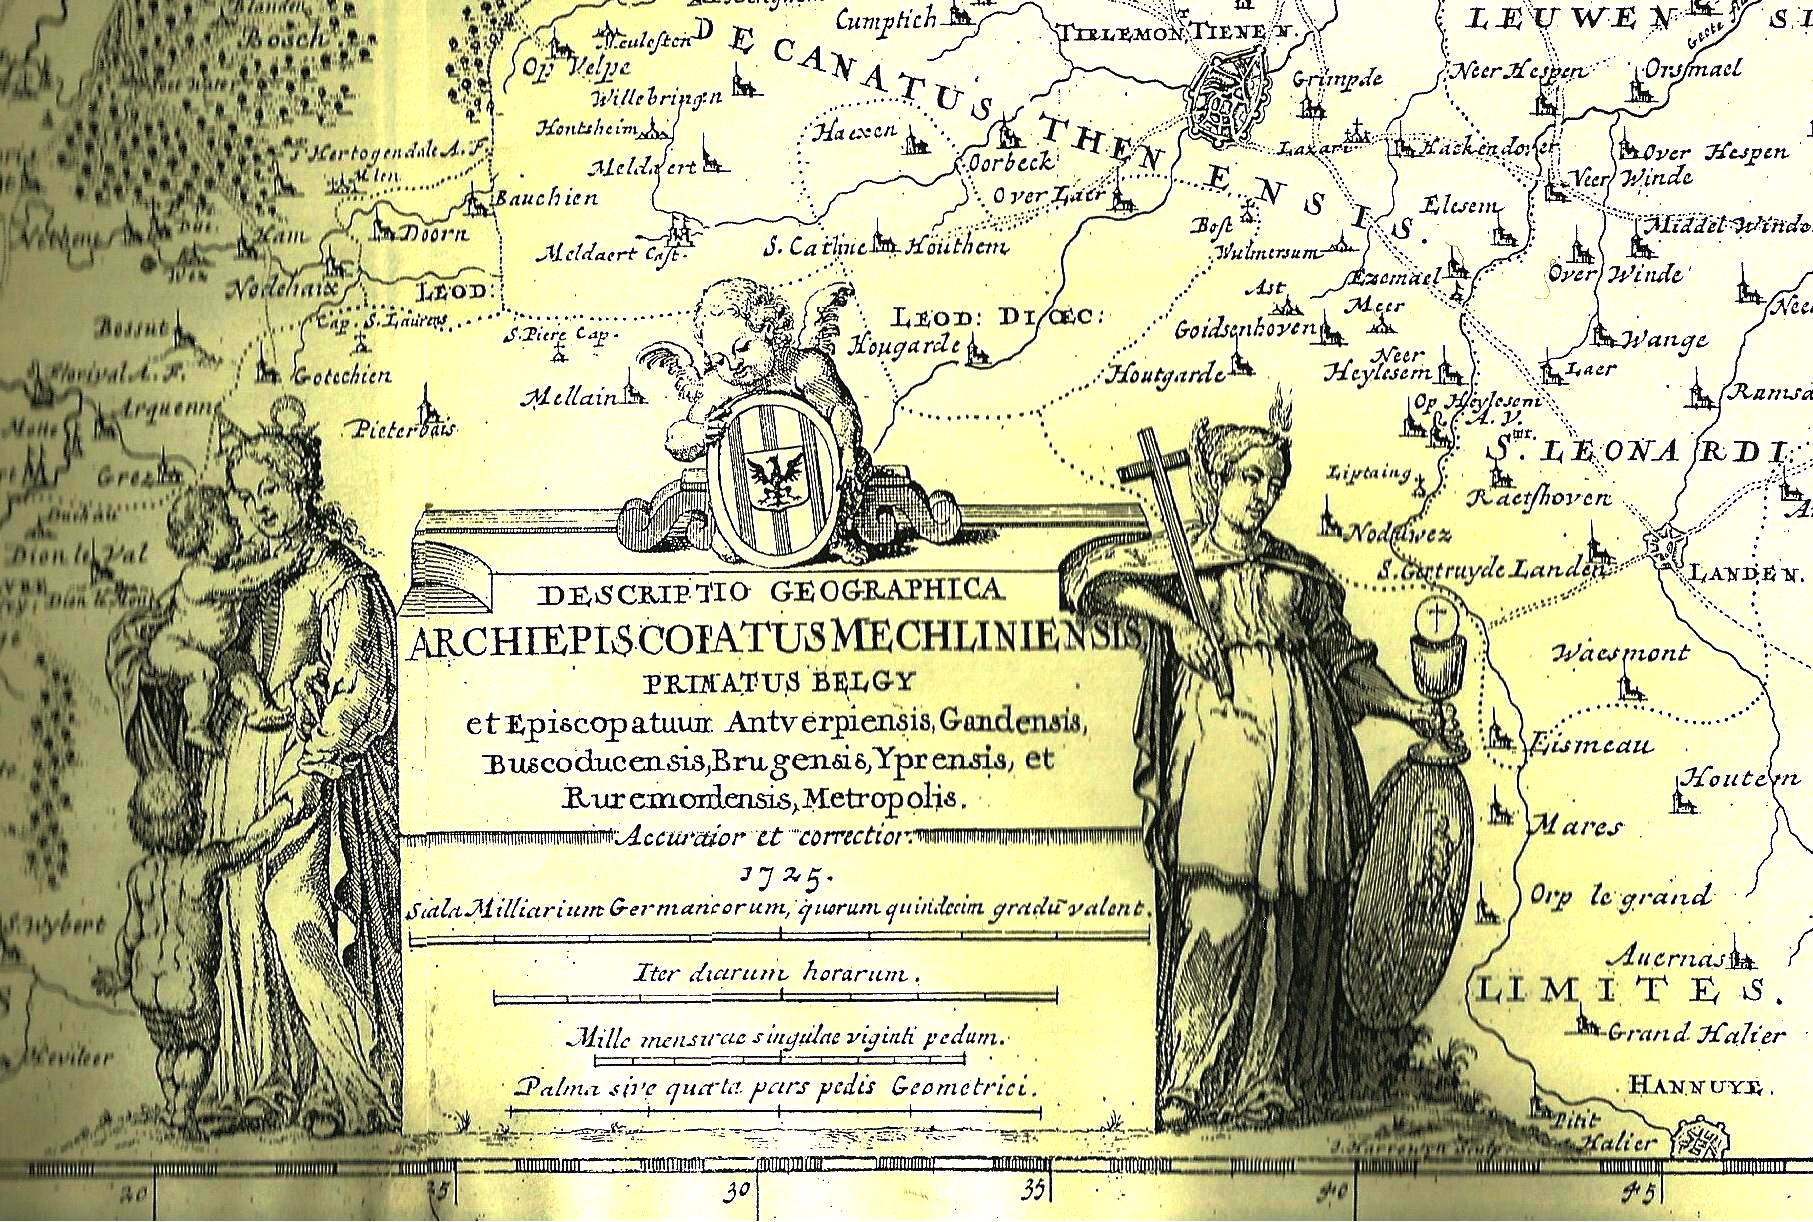 Blanden
Bosch
Meulesten
Op Velpe
Cumptich
TIRLEMONT, TIENEN.
LEUWEN
Geete
DECANATUS THENENSIS.
Willebringen
Grimpde
Neer Hespen
Orsmael
Hontsheim
Haexen
Meldaert
Oorbeck
Lazari
Hackendover
Over Hespen
's Hertogendale A. F.
Mlen
Bauchien
Over Laer
Neer Winde
Elesem
Middel Winde
Nethene
Ham
Doorn
Meldaert Cast.
S. Catline
Houthem
Bost
Wulmersum
Over Winde
Nodehaix
LEOD:
Ast
Ezemael
Meer
Bossut
Cap. S. Laurens
S. Piere Cap.
LEOD: DIŒC:
Hougarde
Goidsenhoven
Wange
S. Florival A. F.
Gotechien
Mellain
Houtgarde
Neer
Heylesem
Laer
Arquenn
Pieterbais
Op Heylesem
A. V.
Grez
Liptaing
S. LEONARDI
Raetshoven
Dion le Val
Noduwez
S. Gertruyde Landen
LANDEN.
DESCRIPTIO GEOGRAPHICA
ARCHIEPISCOPATUS MECHLINIENSIS
PRIMATUS BELGY
et Episcopatuum Antverpiensis, Gandensis,
Buscoducensis, Brugensis, Yprensis, et
Ruremondensis, Metropolis.
Accuratior et correctior.
1725.
Scala Milliarium Germanicorum, quorum quindecim gradũ valent.
Iter diarum horarum.
Mille mensurae singulae viginti pedum.
Palma sive quarta pars pedis Geometrici.
Waesmont
Eismeau
Houtem
Mares
Orp le grand
S. Wybert
Auernas
LIMITES.
Grand Halier
Hevileer
HANNUYE.
Pitit
Halier
J. Harrewyn Sculp.
20
25
30
35
40
45